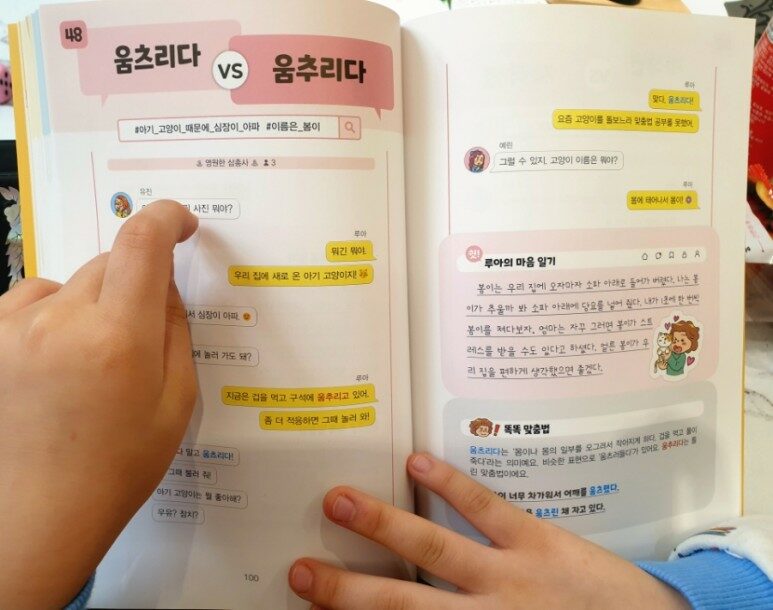 48
움츠리다
VS
움추리다
#아기_고양이_때문에_심장이_아파 #이름은_봄이
영원한 삼총사 3
유진
사진 뭐야?
루아
뭐긴 뭐야.
우리 집에 새로 온 아기 고양이지!
심장이 아파.
놀러 가도 돼?
루아
지금은 겁을 먹고 구석에 움추리고 있어.
좀 더 적응하면 그때 놀러 와!
말고 움츠리다!
그때 불러 줘!
아기 고양이는 뭘 좋아해?
우유? 참치?
100
루아
맞다, 움츠리다!
요즘 고양이를 돌보느라 맞춤법 공부를 못했어.
예린
그럴 수 있지. 고양이 이름은 뭐야?
루아
봄에 태어나서 봄이!
헛!
루아의 마음 일기
봄이는 우리 집에 오자마자 소파 아래로 들어가 버렸다. 나는 봄
이가 추울까 봐 소파 아래에 담요를 넣어 줬다. 내가 1분에 한 번씩
봄이를 쳐다보자, 엄마는 자꾸 그러면 봄이가 스트
레스를 받을 수도 있다고 하셨다. 얼른 봄이가 우
리 집을 편하게 생각했으면 좋겠다.
똑똑 맞춤법
움츠리다는 '몸이나 몸의 일부를 오그려서 작아지게 하다. 겁을 먹고 풀이
죽다'라는 의미예요. 비슷한 표현으로 '움츠러들다'가 있어요. 움추리다는 틀
린 맞춤법이에요.
너무 차가워서 어깨를 움츠렸다.
움츠린 채 자고 있다.